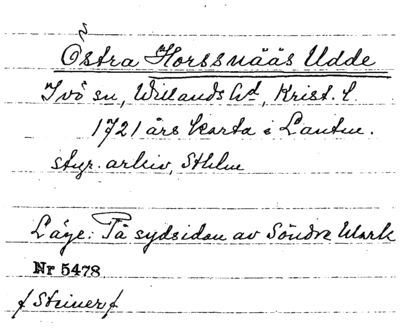 Östra Horssnääs Udde
Ivö sn, Willands hd, Krist. l.
1721 års karta i Lantm.
styr. arkiv, Sthlm
Läge: På sydsidan av Söndre Mark
Nr 5478